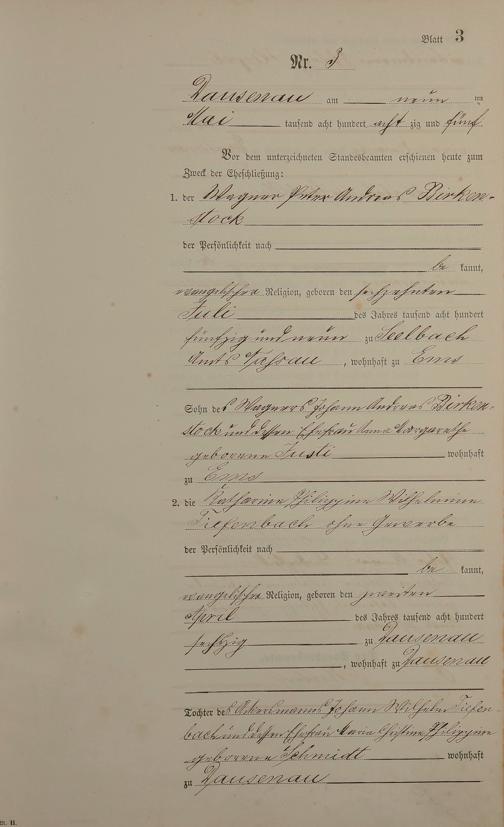 Blatt 3
Nr. 3
Dausenau am neun ten
Mai tausend acht hundert acht zig und fünf
Vor dem unterzeichneten Standesbeamten erschienen heute zum
Zweck der Eheschließung:
1. der Wagner Peter Andreas Birken-
stock
der Persönlichkeit nach
be kannt,
evangelischer Religion, geboren den sechzehnten
Juli des Jahres tausend acht hundert
fünfzig und neun zu Seelbach
Amts Nassau, wohnhaft zu Ems
Sohn des Wagners Johann Andreas Birken-
stock und dessen Ehefrau Anna Margarethe
geborene Justi wohnhaft
zu Ems
2. die Katharine Philippine Wilhelmine
Tiefenbach ohne Gewerbe
der Persönlichkeit nach
be kannt,
evangelischer Religion, geboren den zweiten
April des Jahres tausend acht hundert
sechzig zu Dausenau
, wohnhaft zu Dausenau
Tochter des Ackersmanns Johann Wilhelm Tiefen-
bach und dessen Ehefrau Maria Christine Philippine
geborene Schmidt wohnhaft
zu Dausenau